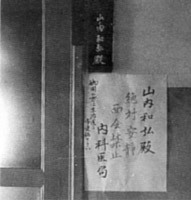 山内和弘殿
山内和弘殿
絶対安静
面会禁止
内科医局